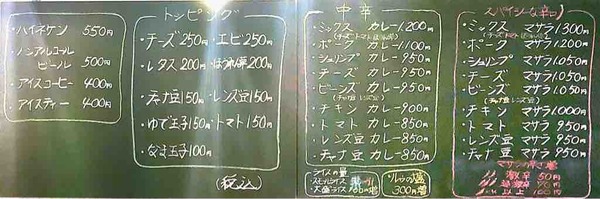 ・ハイネケン 550円
・ノンアルコール
ビール 500円
・アイスコーヒー 400円
・アイスティー 400円
トッピング
・チーズ250円 ・エビ250円
・レタス200円 ・ほうれん草200円
・チャナ豆150円 ・レンズ豆150円
・ゆで玉子150円 ・トマト150円
・なま玉子100円
(税込)
中辛
・ミックス カレー1.200円
・ポーク カレー1.100円
・シュリンプ カレー950円
・チーズ カレー950円
・ビーンズ カレー950円
(チャナ豆 レンズ豆)
・チキン カレー900円
・トマト カレー850円
・レンズ豆 カレー850円
・チャナ豆 カレー850円
ライスの量
大盛ライス
ルゥの大盛
300円増
スパイシー(辛口)
・ミックス マサラ1300円
・ポーク マサラ1.200円
・シュリンプ マサラ1.050円
・チーズ マサラ1.050円
・ビーンズ マサラ1.050円
(チャナ豆 レンズ豆)
・チキン マサラ1.000円
・トマト マサラ950円
・レンズ豆 マサラ950円
・チャナ豆 マサラ950円
激辛 50円
以上 100円